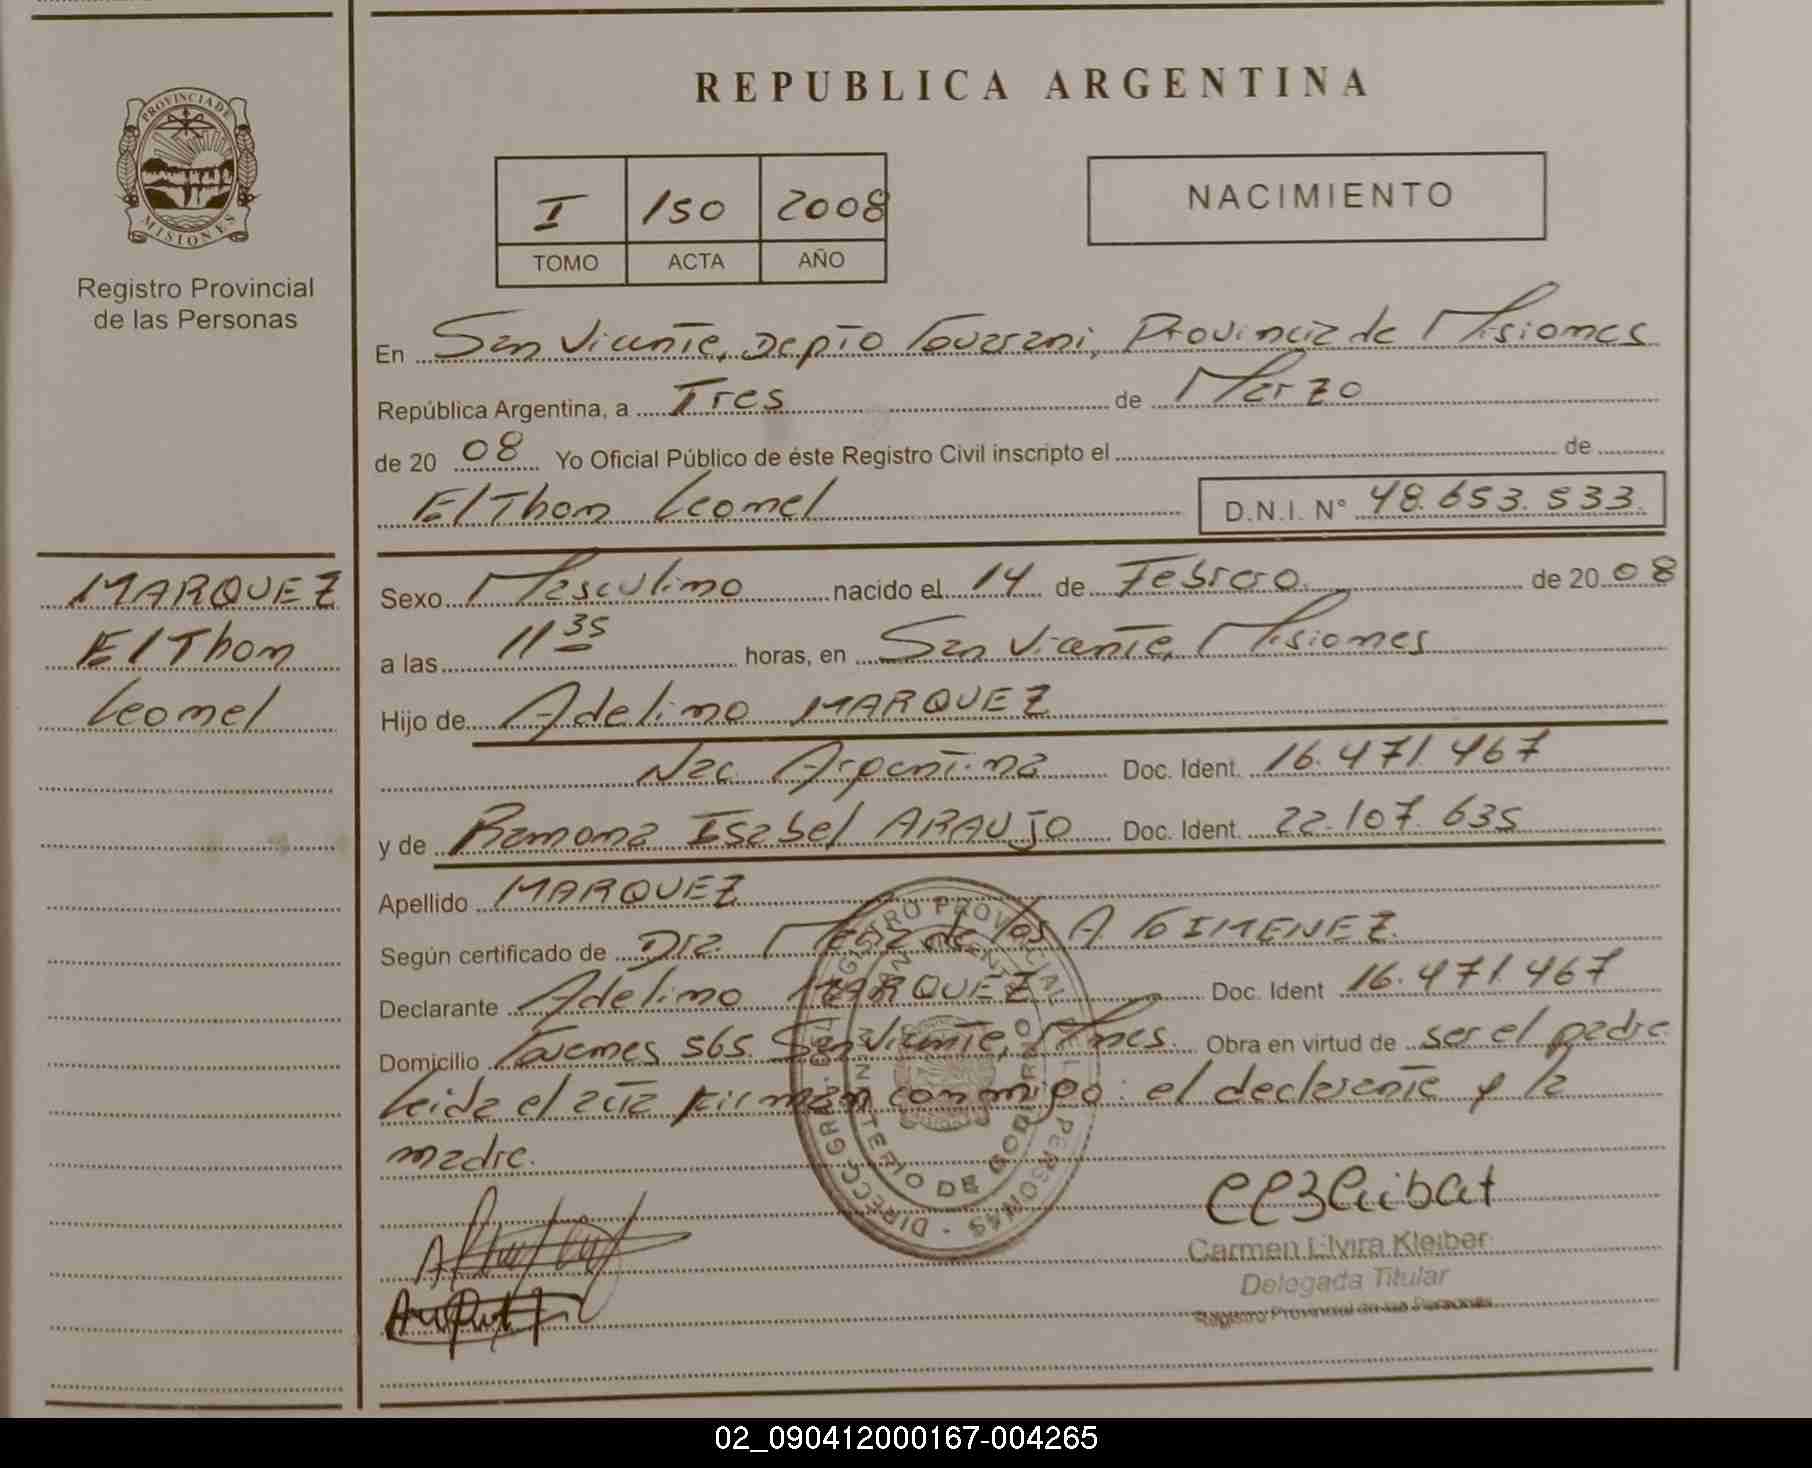 PROVINCIA DE
MISIONES
Registro Provincial
de las Personas
REPUBLICA ARGENTINA
I 150 2008
TOMO ACTA AÑO
NACIMIENTO
En San Vicente, Depto Guarani, Provincia de Misiones
República Argentina, a Tres de Marzo
de 20 08 Yo Oficial Público de éste Registro Civil inscripto el de
ElThon Leonel D.N.I. N° 48.653.533.
MARQUEZ
ElThon
Leonel
Sexo Masculino nacido el 14 de Febrero. de 20 08
a las 11 35 horas, en San Vicente, Misiones
Hijo de Adelino MARQUEZ
Nac Argentina Doc. Ident. 16.471.467
y de Ramona Isabel ARAUJO Doc. Ident. 22.107.635
Apellido MARQUEZ
Según certificado de Dra. Maria de los A. GIMENEZ.
Declarante Adelino MARQUEZ Doc. Ident 16.471.467
Domicilio Guemes 565. San Vicente, Mnes. Obra en virtud de ser el padre
Leida el acta firman conmigo: el declarante y la
madre.
Carmen Elvira Kleiber
Delegada Titular
Registro Provincial de las Personas
02_090412000167-004265